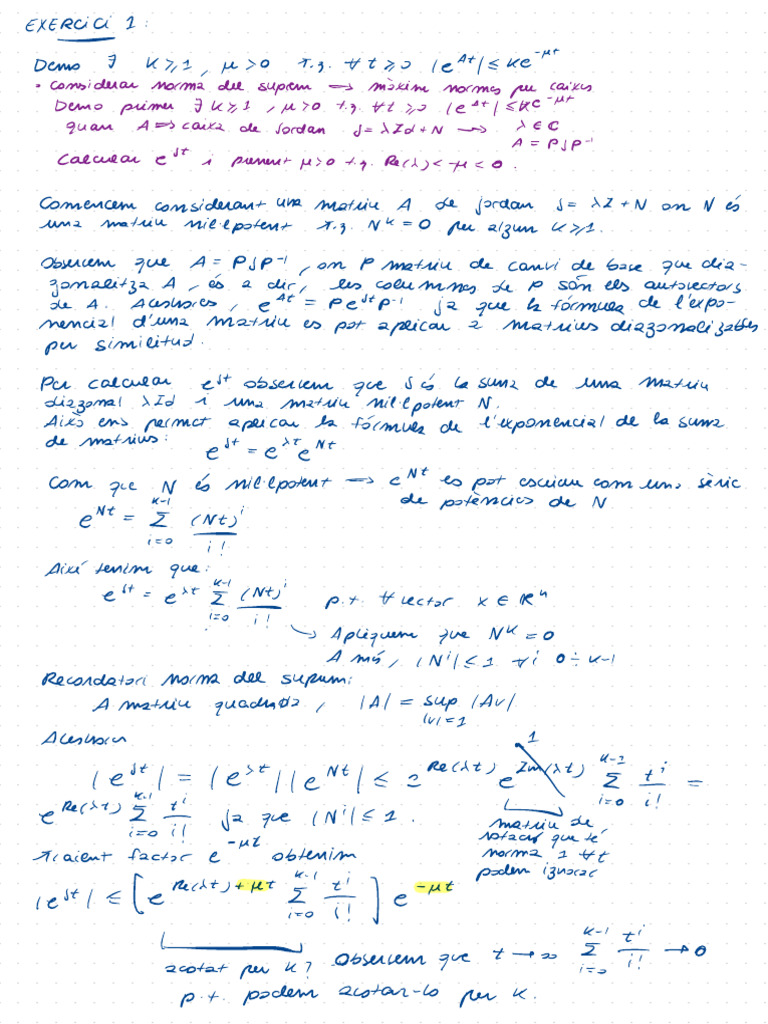 EXERCICI 1:
Demo ∃ K≥1, μ>0 t.q. ∀t≥0 |e^{At}| ≤ Ke^{-μt}
• Considerar norma del suprem → màxim normes per caixes
Demo primer ∃ K≥1, μ>0 t.q. ∀t≥0 |e^{At}| ≤ Ke^{-μt}
quan A ⇒ caixa de Jordan J = λId + N → λ ∈ ℂ
A = PJP^{-1}
Calcular e^{Jt} i prenent μ>0 t.q. Re(λ) < -μ < 0.
Comencem considerant una matriu A de Jordan J = λI + N on N és
una matriu nil·lpotent t.q. N^K = 0 per algun K≥1.
Observem que A = PJP^{-1}, on P matriu de canvi de base que dia-
gonalitza A, és a dir, les columnes de P són els autovectors
de A. Aleshores, e^{At} = Pe^{Jt}P^{-1} ja que la fórmula de l'expo-
nencial d'una matriu es pot aplicar a matrius diagonalitzables
per similitud.
Per calcular e^{Jt} observem que J és la suma de una matriu
diagonal λId i una matriu nil·lpotent N.
Això ens permet aplicar la fórmula de l'exponencial de la suma
de matrius: e^{Jt} = e^{λt} e^{Nt}
Com que N és nil·lpotent → e^{Nt} es pot escriure com una sèrie
de potències de N
e^{Nt} = Σ_{i=0}^{K-1} (Nt)^i / i!
Així tenim que:
e^{Jt} = e^{λt} Σ_{i=0}^{K-1} (Nt)^i / i! p.t. ∀ vector x ∈ ℝ^n
↳ Apliquem que N^K = 0
A més, |N^i| ≤ 1 ∀i 0÷K-1
Recordatori norma del suprem:
A matriu quadrada, |A| = sup_{|v|=1} |Av|
Aleshores
|e^{Jt}| = |e^{λt}| |e^{Nt}| ≤ e^{Re(λt)} e^{Im(λt)} 1 Σ_{i=0}^{K-1} t^i / i! =
e^{Re(λt)} Σ_{i=0}^{K-1} t^i / i! ja que |N^i| ≤ 1.
matriu de
rotació que té
norma 1 ∀t
podem ignorar
traient factor e^{-μt} obtenim
|e^{Jt}| ≤ [e^{Re(λt)+μt} Σ_{i=0}^{K-1} t^i / i!] e^{-μt}
acotat per K? Observem que t→∞ Σ_{i=0}^{K-1} t^i / i! → 0
p.t. podem acotar-lo per K.